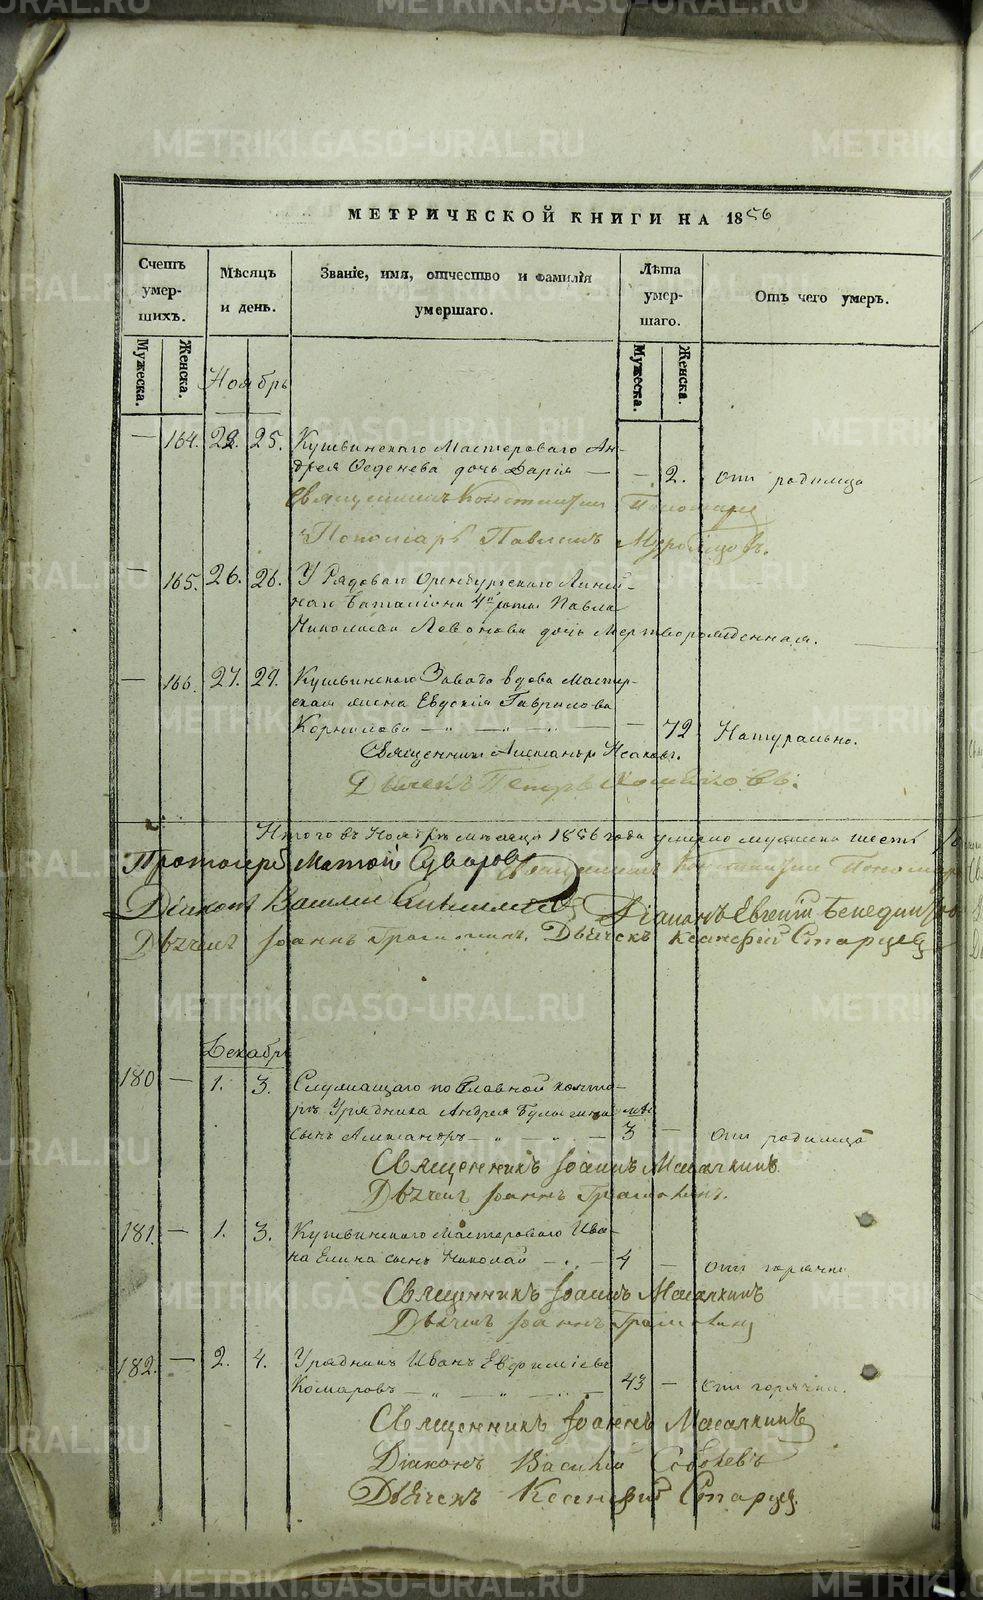 МЕТРИЧЕСКОЙ КНИГИ НА 1856
Счетъ умер-шихъ.
Мѣсяцъ и день.
Званіе, имя, отчество и фамилія умершаго.
Лѣта умер-шаго.
Отъ чего умеръ.
Мужеска. Женска. Мужеска. Женска.
Ноябрь
— 164. 22. 25. Кушвинскаго Мастероваго Ан-
дрея дочь Дарія — — 2. отъ родимца
Священникъ Константинъ
Пономарь Павелъ
— 165. 26. 26. У Рядоваго Оренбургскаго Линей-
наго Баталіона 4й роты Павла
Николаева Левонова дочь Мертворожденная.
— 166. 27. 29. Кушвинскаго Завода вдова Мастер-
ская жена Евдокія Гаврилова
Корнилова — „ — „ — — 72 Натурально.
Священникъ Александръ
Дьячекъ Петръ
Итого въ Ноябрѣ мѣсяцѣ 1856 года умерло мужеска шесть
Протоіерей Матѳей Суворовъ Священникъ Константинъ
Діаконъ Василій Діаконъ Евгеній
Дьячекъ Іоаннъ Дьячекъ Ксенофонтъ Старцевъ
Декабрь
180 — 1. 3. Служащаго по Главной конто-
рѣ Урядника Андрея Булыгина мѣ
сынъ Александръ — „ — „ — 3 — отъ родимца
Священникъ Іоаннъ Масалкинъ
Дьячекъ Іоаннъ
181. — 1. 3. Кушвинскаго Мастероваго Ива-
на Елина сынъ Николай — „ — 4 — отъ горячки
Священникъ Іоаннъ Масалкинъ
Дьячекъ Іоаннъ
182. — 2. 4. Урядникъ Иванъ Евфиміевъ
Комаровъ — „ — „ — 43 — отъ горячки.
Священникъ Іоаннъ Масалкинъ
Діаконъ Василій Соболевъ
Дьячекъ Ксенофонтъ Старцев.
METRIKI.GASO-URAL.RU